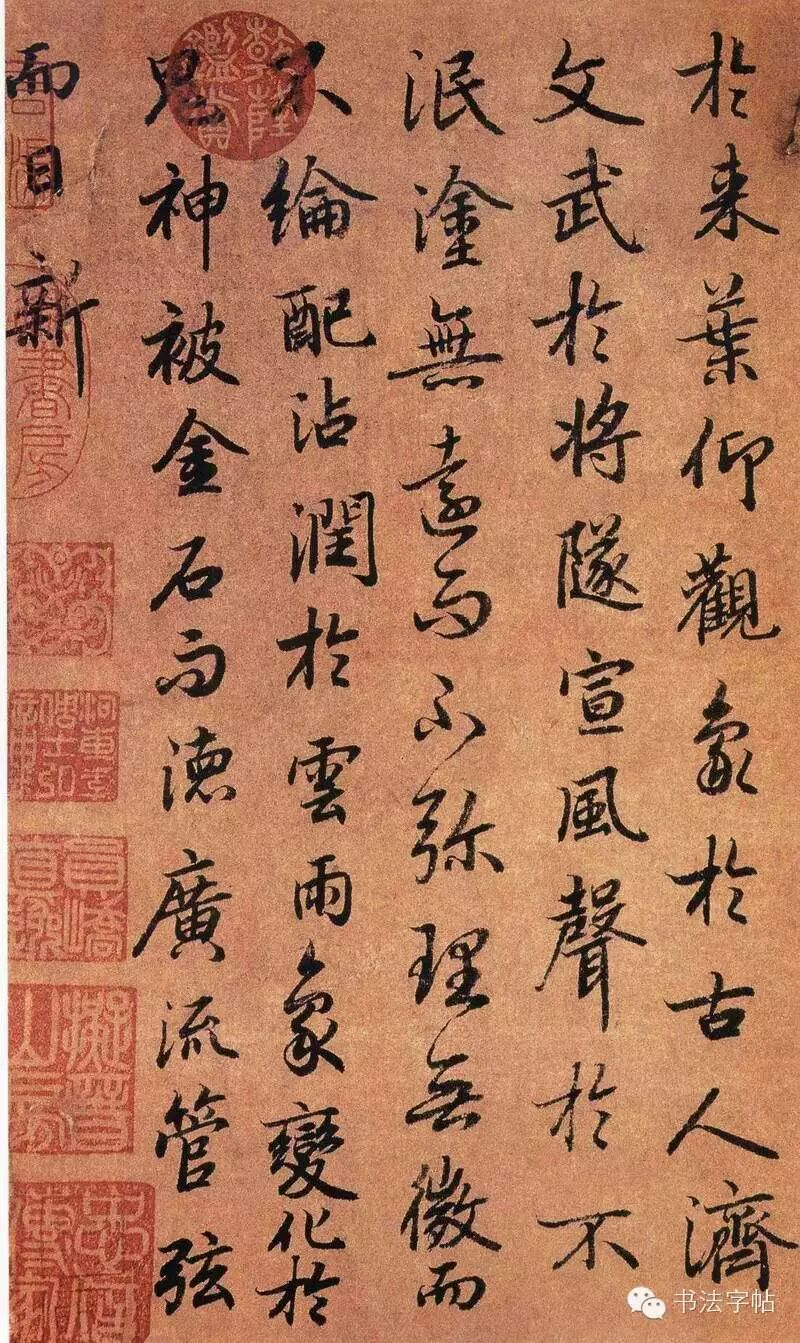 於来葉仰觀象於古人濟
文武於將墜宣風聲於不
泯塗無遠而不弥理無微而
不綸配沾潤於雲雨象變化於
鬼神被金石而德廣流管弦
而日新
乾隆鑑賞
書法字帖